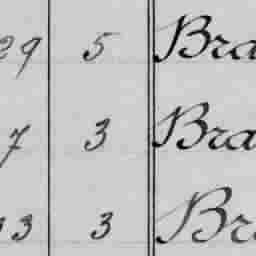 29 5 Bra
7 3 Bra
13 3 Br